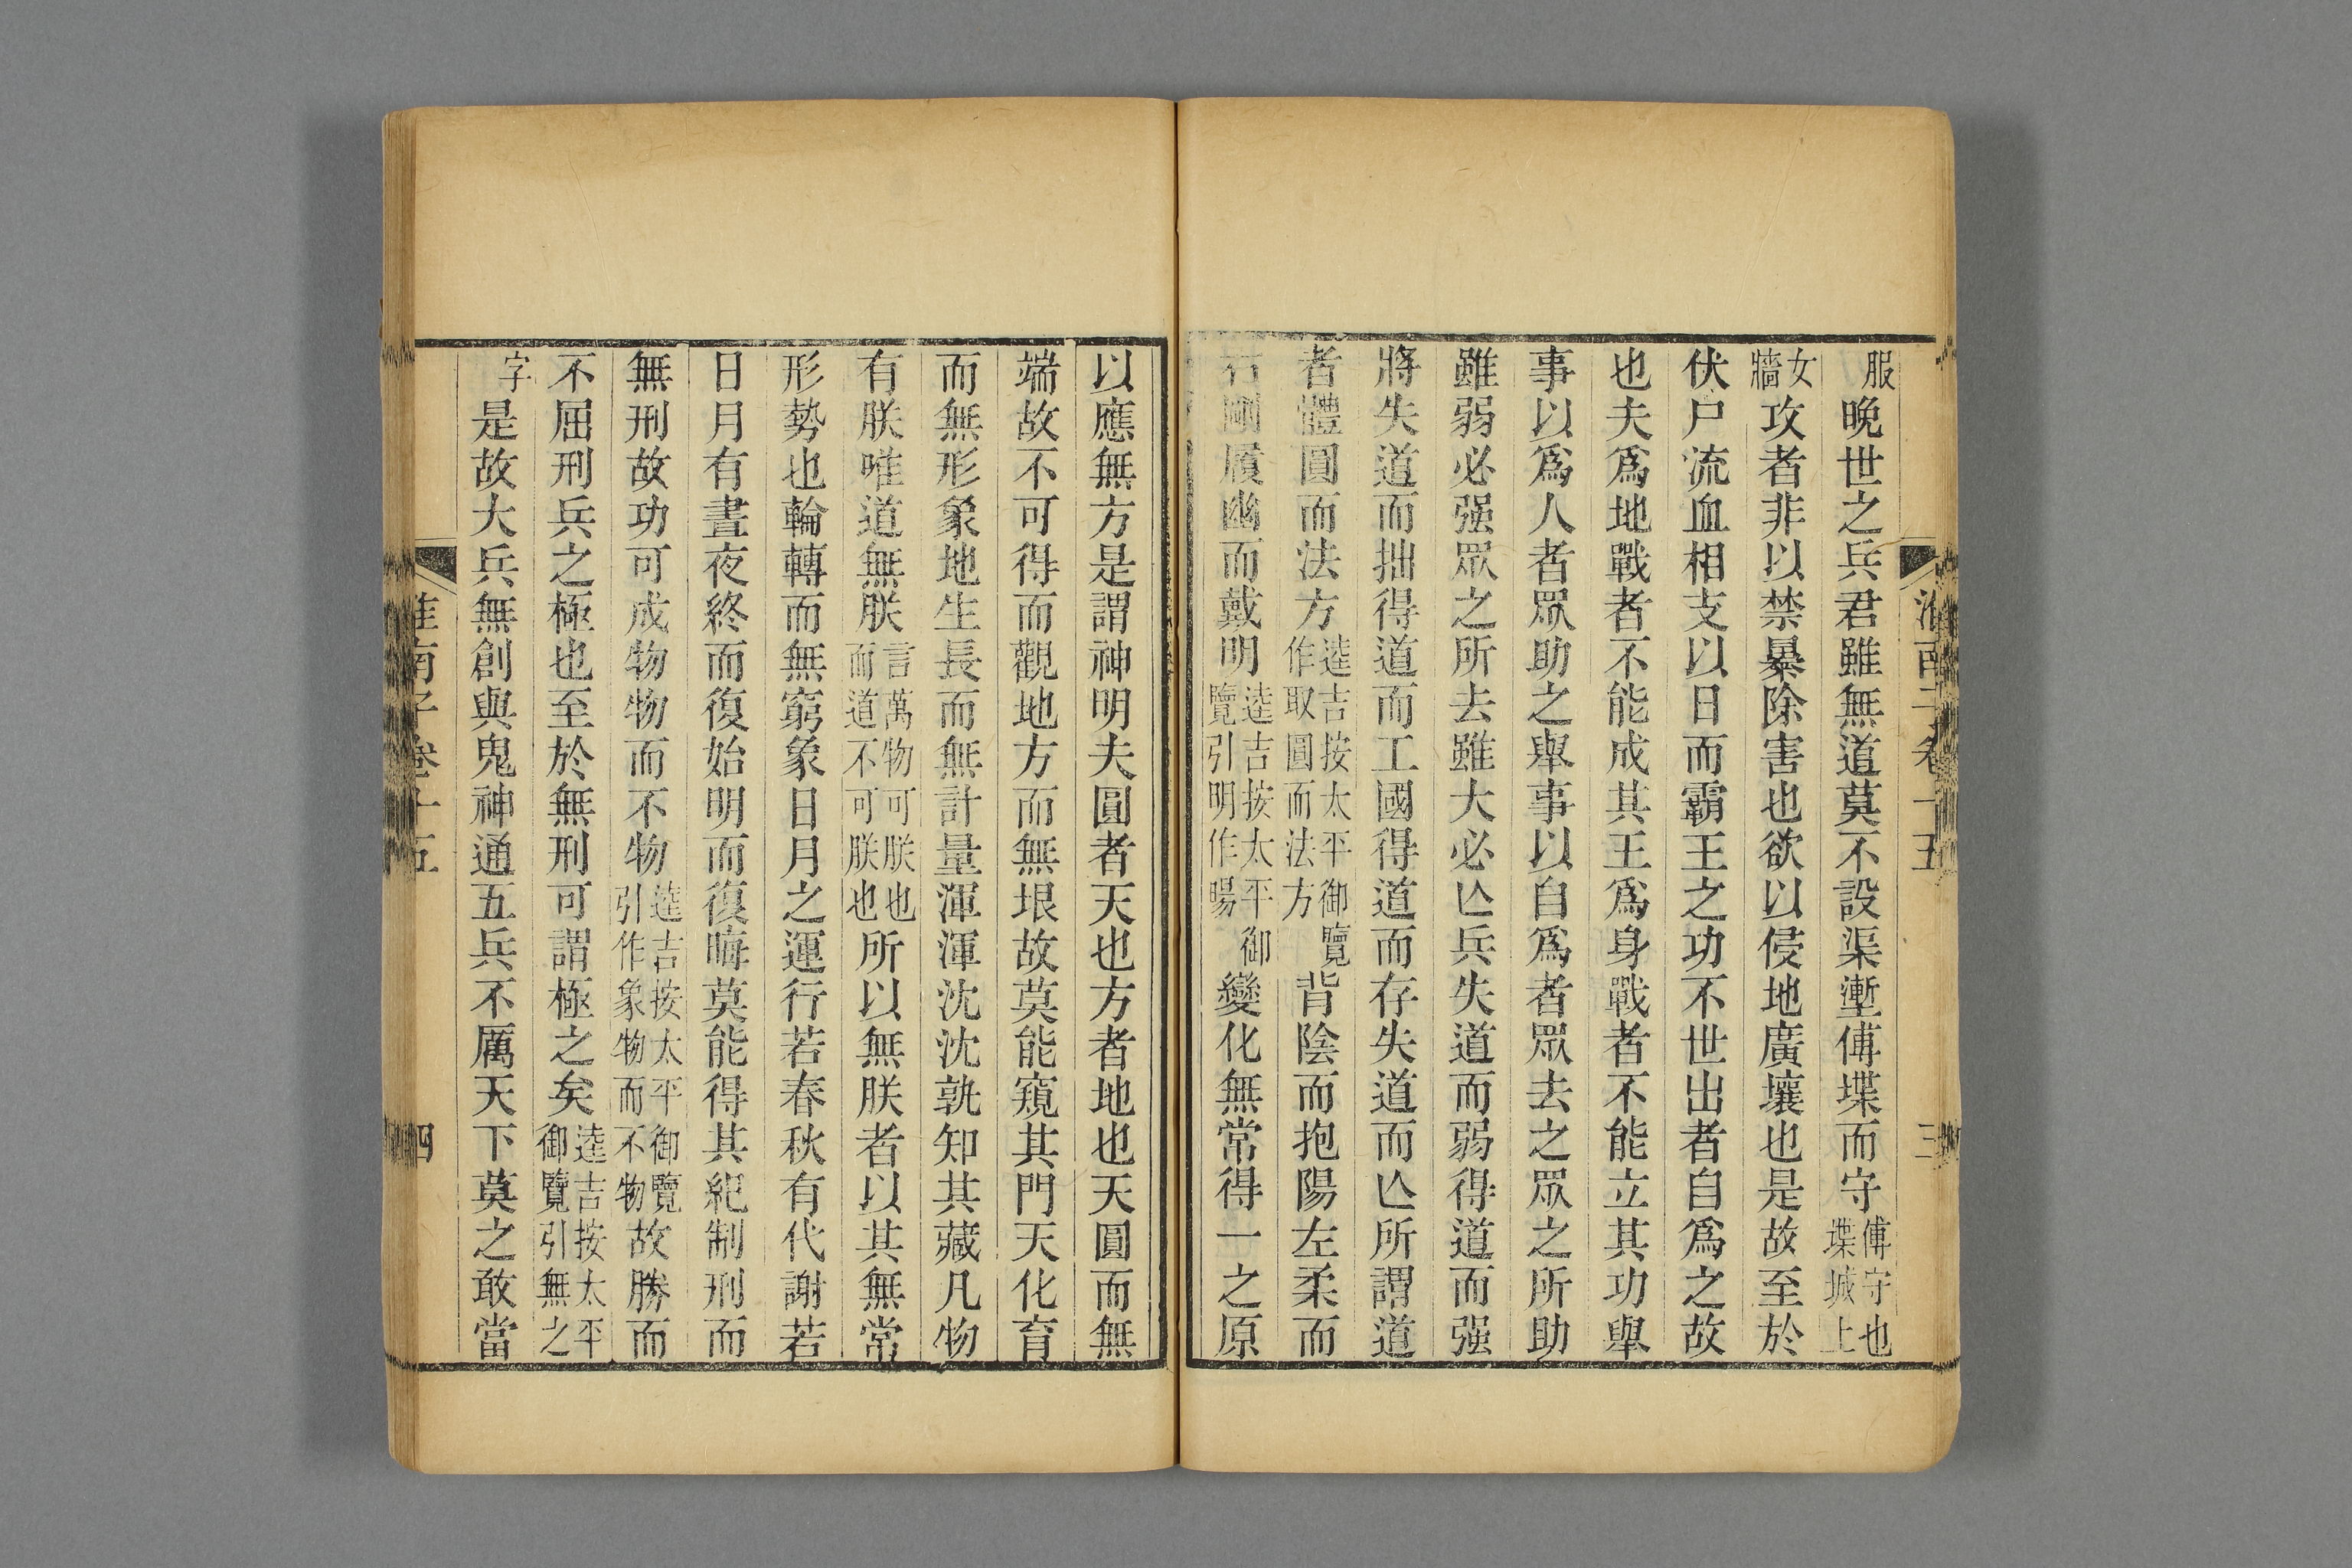 服晚世之兵君雖無道莫不設渠壍傅堞而守傅守也堞城上
女牆攻者非以禁暴除害也欲以侵地廣壤也是故至於
伏尸流血相支以日而霸王之功不世出者自爲之故
也夫爲地戰者不能成其王爲身戰者不能立其功舉
事以爲人者眾助之舉事以自爲者眾去之眾之所助
雖弱必强眾之所去雖大必亾兵失道而弱得道而强
將失道而拙得道而工國得道而存失道而亾所謂道
者體圓而法方逵吉按太平御覽作取圓而法方背陰而抱陽左柔而
右剛履幽而戴明逵吉按太平御覽引明作暘變化無常得一之原
淮南子卷十五 三
以應無方是謂神明夫圓者天也方者地也天圓而無
端故不可得而觀地方而無垠故莫能窺其門天化育
而無形象地生長而無計量渾渾沈沈孰知其藏凡物
有朕唯道無朕言萬物可朕也而道不可朕也所以無朕者以其無常
形勢也輪轉而無窮象日月之運行若春秋有代謝若
日月有晝夜終而復始明而復晦莫能得其紀制刑而
無刑故功可成物物而不物逵吉按太平御覽引作象物而不物故勝而
不屈刑兵之極也至於無刑可謂極之矣逵吉按太平御覽引無之
字是故大兵無創與鬼神通五兵不厲天下莫之敢當
淮南子卷十五 四